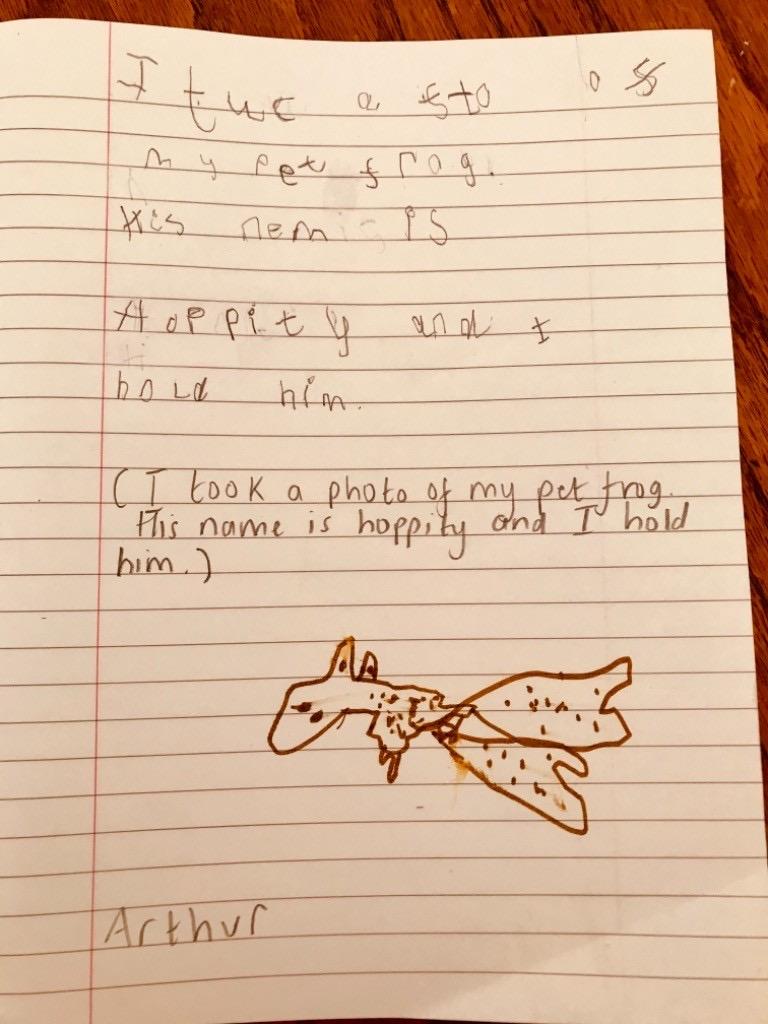 I tuc a fto of
my pet frog.
His nem is
Hoppity and I
hold him.
(I took a photo of my pet frog.
His name is hoppity and I hold
him.)
Arthur